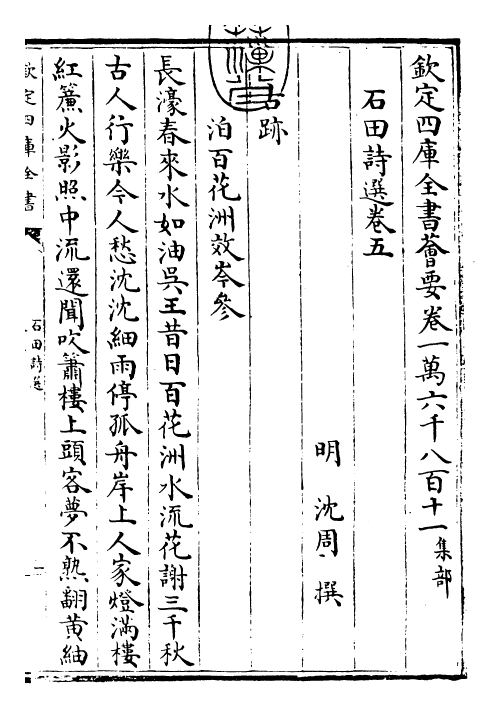 欽定四庫全書薈要卷一萬六千八百十一集部
石田詩選卷五
明 沈周 撰
古跡
泊百花洲效岑參
長濠春來水如油吳王昔日百花洲水流花謝三千秋
古人行樂今人愁沈沈細雨停孤舟岸上人家燈滿樓
紅簾火影照中流還聞吹簫樓上頭客夢不熟翻黃紬
欽定四庫全書
石田詩選
一